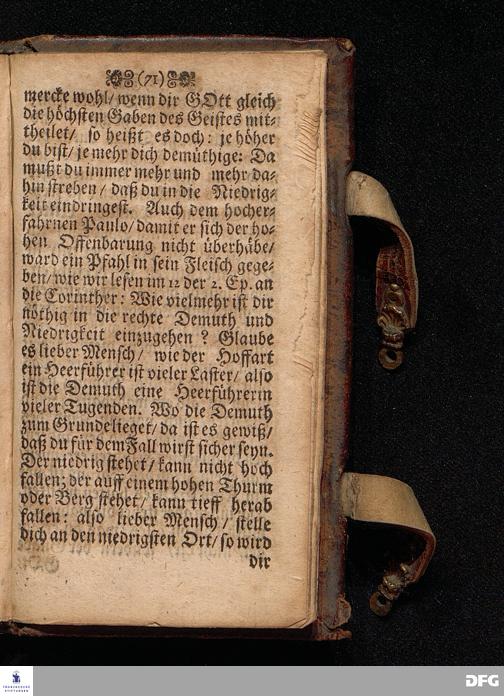 (71)
mercke wohl/ wenn dir GOtt gleich
die höchsten Gaben des Geistes mit-
theilet/ so heißt es doch: je höher
du bist/ je mehr dich demüthige: Da
mußt du immer mehr und mehr da-
hin streben/ daß du in die Niedrig-
keit eindringest. Auch dem hocher-
fahrnen Paulo/ damit er sich der ho-
hen Offenbarung nicht überhübe/
ward ein Pfahl in sein Fleisch gege-
ben/ wie wir lesen im 12 der 2. Ep. an
die Corinther: Wie vielmehr ist dir
nöthig in die rechte Demuth und
Niedrigkeit einzugehen? Glaube
es lieber Mensch/ wie der Hoffart
ein Heerführer ist vieler Laster/ also
ist die Demuth eine Heerführerin
vieler Tugenden. Wo die Demuth
zum Grunde lieget/ da ist es gewiß/
daß du für dem Fall wirst sicher seyn.
Der niedrig stehet/ kann nicht hoch
fallen; der auff einem hohen Thurm
oder Berg stehet/ kann tieff herab
fallen: also lieber Mensch/ stelle
dich an den niedrigsten Ort/ so wird
dir
FRANCKESCHE
STIFTUNGEN
DFG